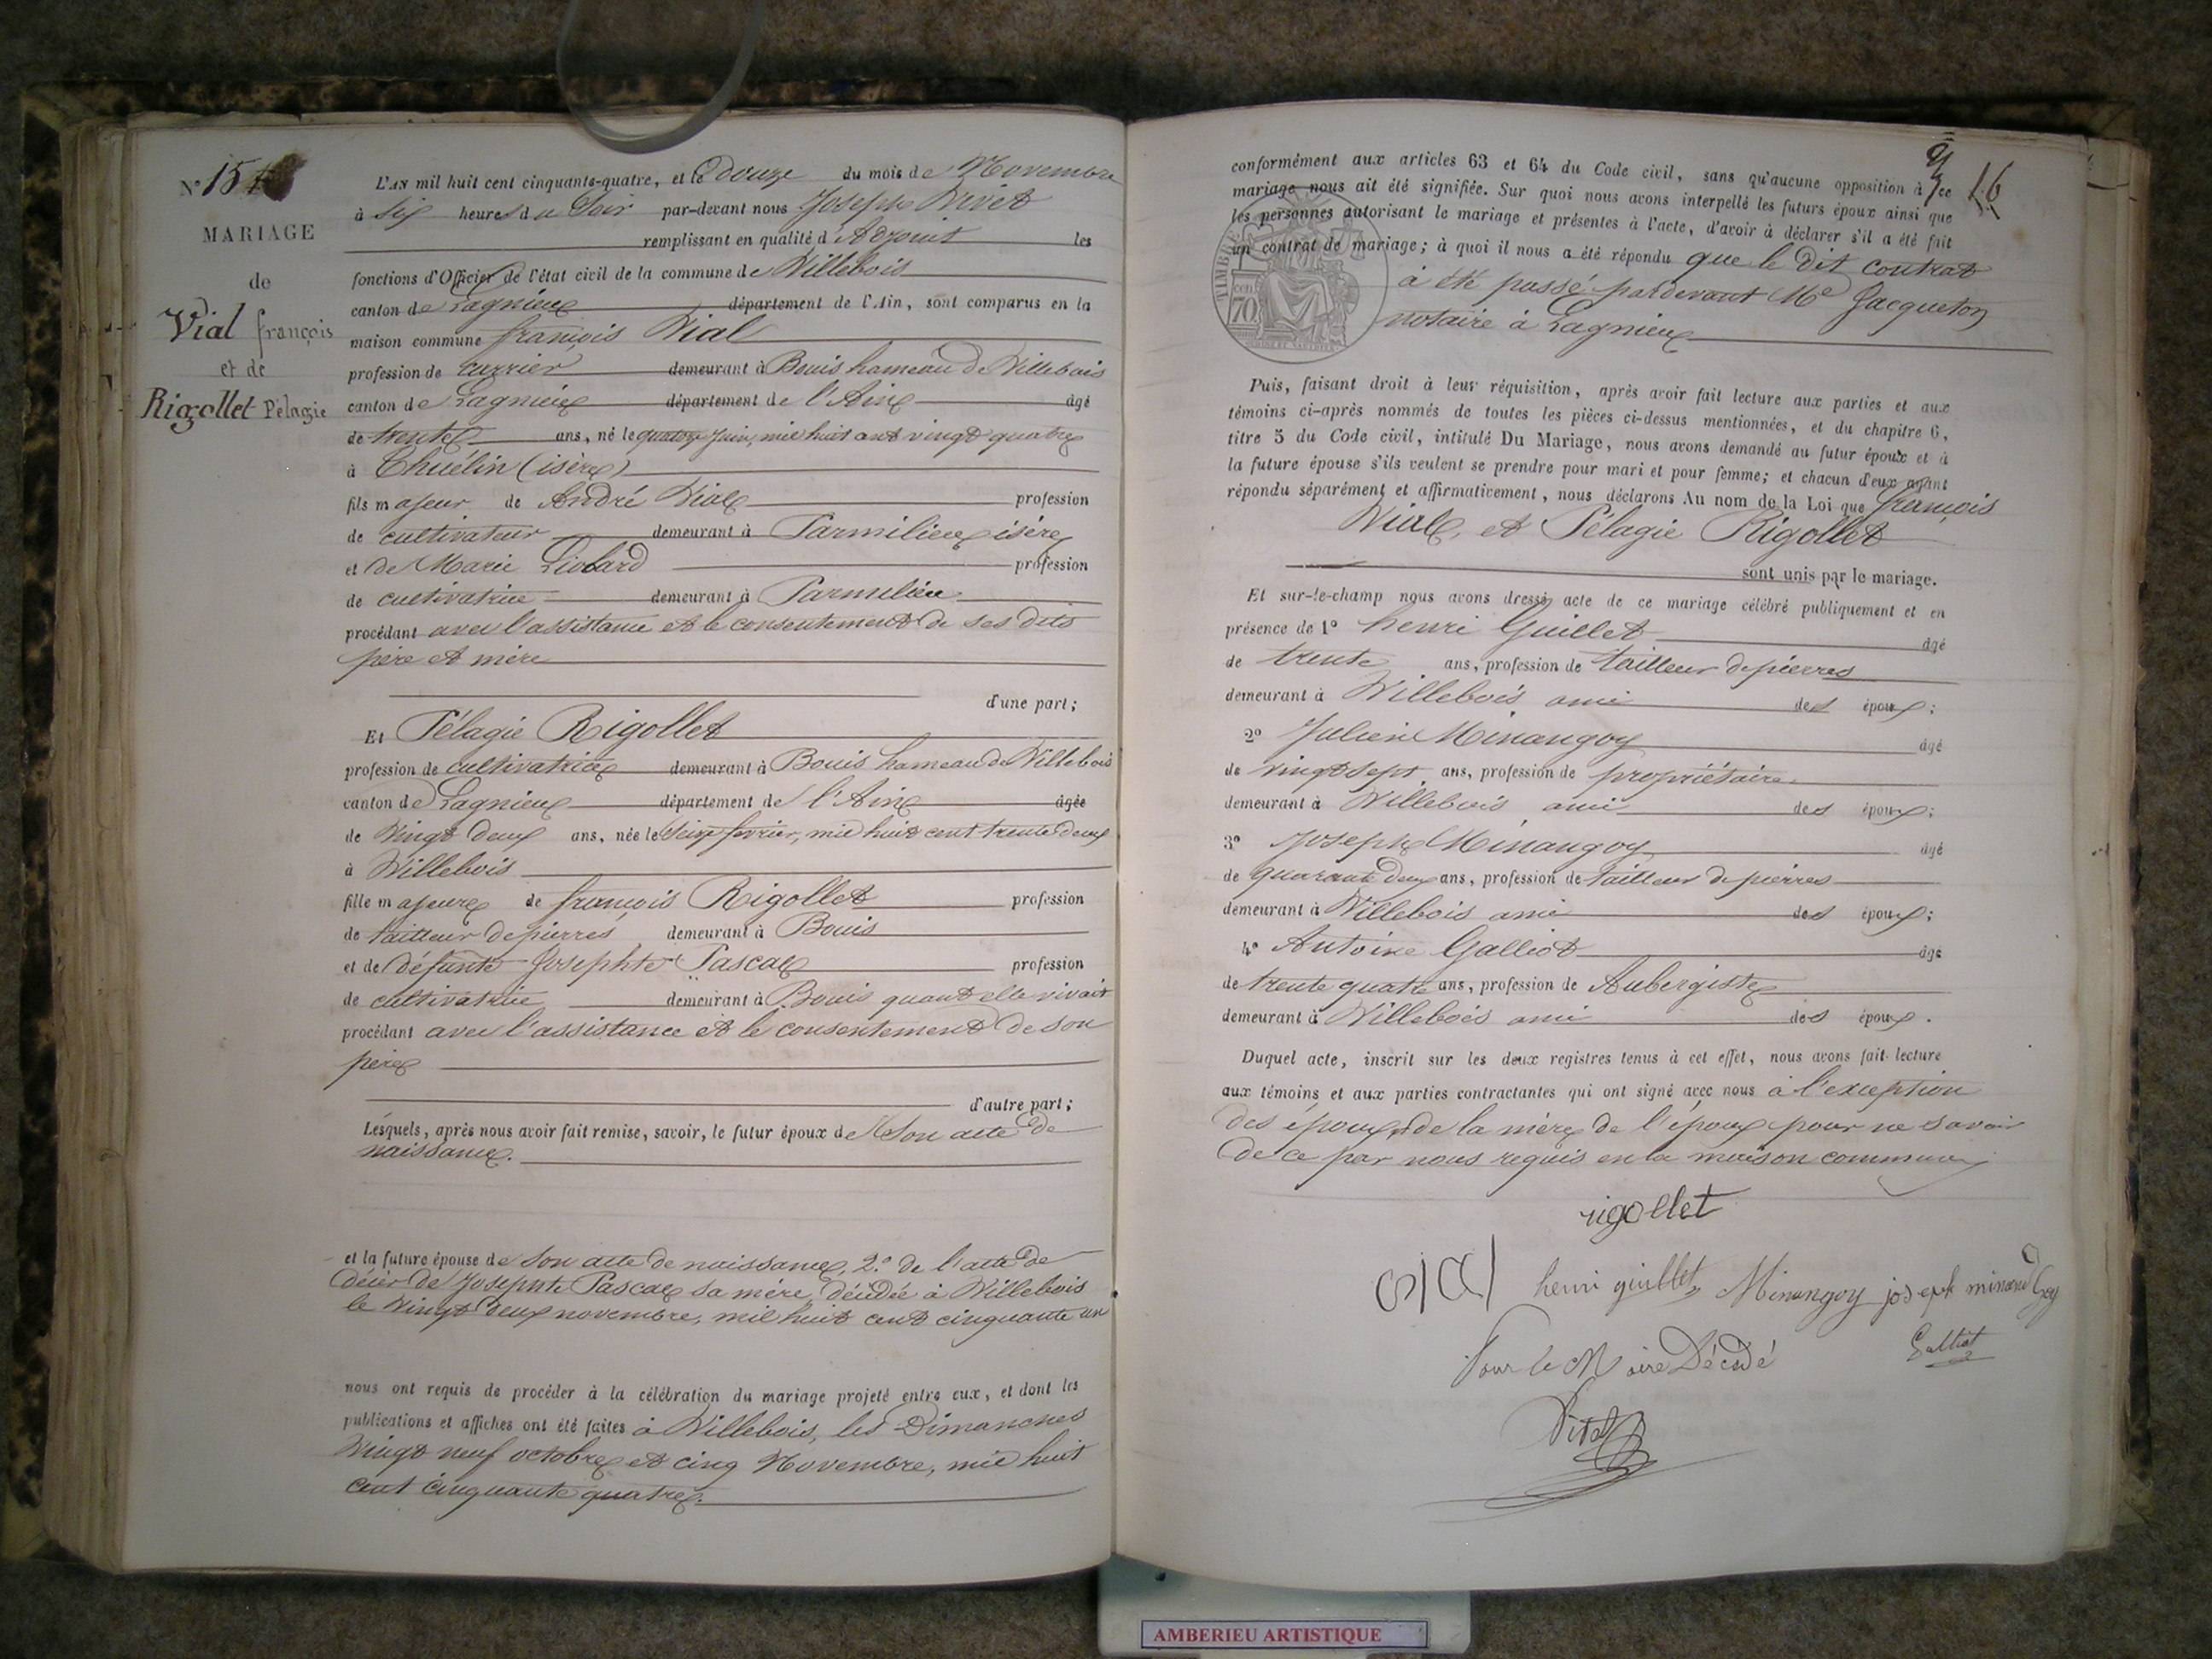 N° 15
MARIAGE
de
Vial françois
et de
Rigollet Pélagie
L'AN mil huit cent cinquante-quatre, et le Douze du mois de Novembre
à six heures du Soir par-devant nous Joseph
remplissant en qualité d'Adjoint les
fonctions d'Officier de l'état civil de la commune de Villebois
canton de Lagnieux département de l'Ain, sont comparus en la
maison commune françois Vial
profession de carrier demeurant à Bouis hameau de Villebois
canton de Lagnieux département de l'Ain âgé
de trente ans, né le quatorze Juin, mil huit cent vingt quatre
à Thuélin (isère)
fils majeur de André Vial profession
de cultivateur demeurant à Parmilieu isère
et de Marie Liobard profession
de cultivatrice demeurant à Parmilieu
procédant avec l'assistance et le consentement de ses dits
père et mère
d'une part;
Et Pélagie Rigollet
profession de cultivatrice demeurant à Bouis hameau de Villebois
canton de Lagnieux département de l'Ain âgée
de Vingt deux ans, née le Seize fevrier, mil huit cent trente deux
à Villebois
fille majeure de françois Rigollet profession
de tailleur de pierres demeurant à Bouis
et de défunte Josephte Pascal profession
de cultivatrice demeurant à Bouis quand elle vivait
procédant avec l'assistance et le consentement de son
père
d'autre part;
Lesquels, après nous avoir fait remise, savoir, le futur époux de Son acte de
naissance.
et la future épouse de Son acte de naissance, 2.° de l'acte de
décèr de Josephte Pascal sa mère, décédée à Villebois
le Vingt deux novembre, mil huit cent cinquante un
nous ont requis de procéder à la célébration du mariage projeté entre eux, et dont les
publications et affiches ont été faites à Villebois, les Dimanches
Vingt neuf octobre et cinq Novembre, mil huit
cent cinquante quatre.
16
conformément aux articles 63 et 64 du Code civil, sans qu'aucune opposition à ce
mariage nous ait été signifiée. Sur quoi nous avons interpellé les futurs époux ainsi que
les personnes autorisant le mariage et présentes à l'acte, d'avoir à déclarer s'il a été fait
un contrat de mariage; à quoi il nous a été répondu que le dit contrat
à été passé pardevant Me Jacqueton
notaire à Lagnieux
TIMBRE
70
Puis, faisant droit à leur réquisition, après avoir fait lecture aux parties et aux
témoins ci-après nommés de toutes les pièces ci-dessus mentionnées, et du chapitre 6,
titre 5 du Code civil, intitulé Du Mariage, nous avons demandé au futur époux et à
la future épouse s'ils veulent se prendre pour mari et pour femme; et chacun d'eux ayant
répondu séparément et affirmativement, nous déclarons Au nom de la Loi que françois
Vial, et Pélagie Rigollet
sont unis par le mariage.
Et sur-le-champ nous avons dressé acte de ce mariage célébré publiquement et en
présence de 1° henri Guillet âgé
de trente ans, profession de tailleur de pierres
demeurant à Villebois ami des époux;
2° Julien Minangoy âgé
de vingt sept ans, profession de propriétaire
demeurant à Villebois ami des époux;
3° Joseph Minangoy âgé
de quarante deux ans, profession de tailleur de pierres
demeurant à Villebois ami des époux;
4° Antoine Galliot âgé
de trente quatre ans, profession de Aubergiste
demeurant à Villebois ami des époux.
Duquel acte, inscrit sur les deux registres tenus à cet effet, nous avons fait lecture
aux témoins et aux parties contractantes qui ont signé avec nous à l'exception
des époux, de la mère de l'époux pour ne savoir
de ce par nous requis en la maison commune
rigollet
henri guillet Minangoy joseph minangoy
Galliot
Pour le Maire Décédé
AMBERIEU ARTISTIQUE